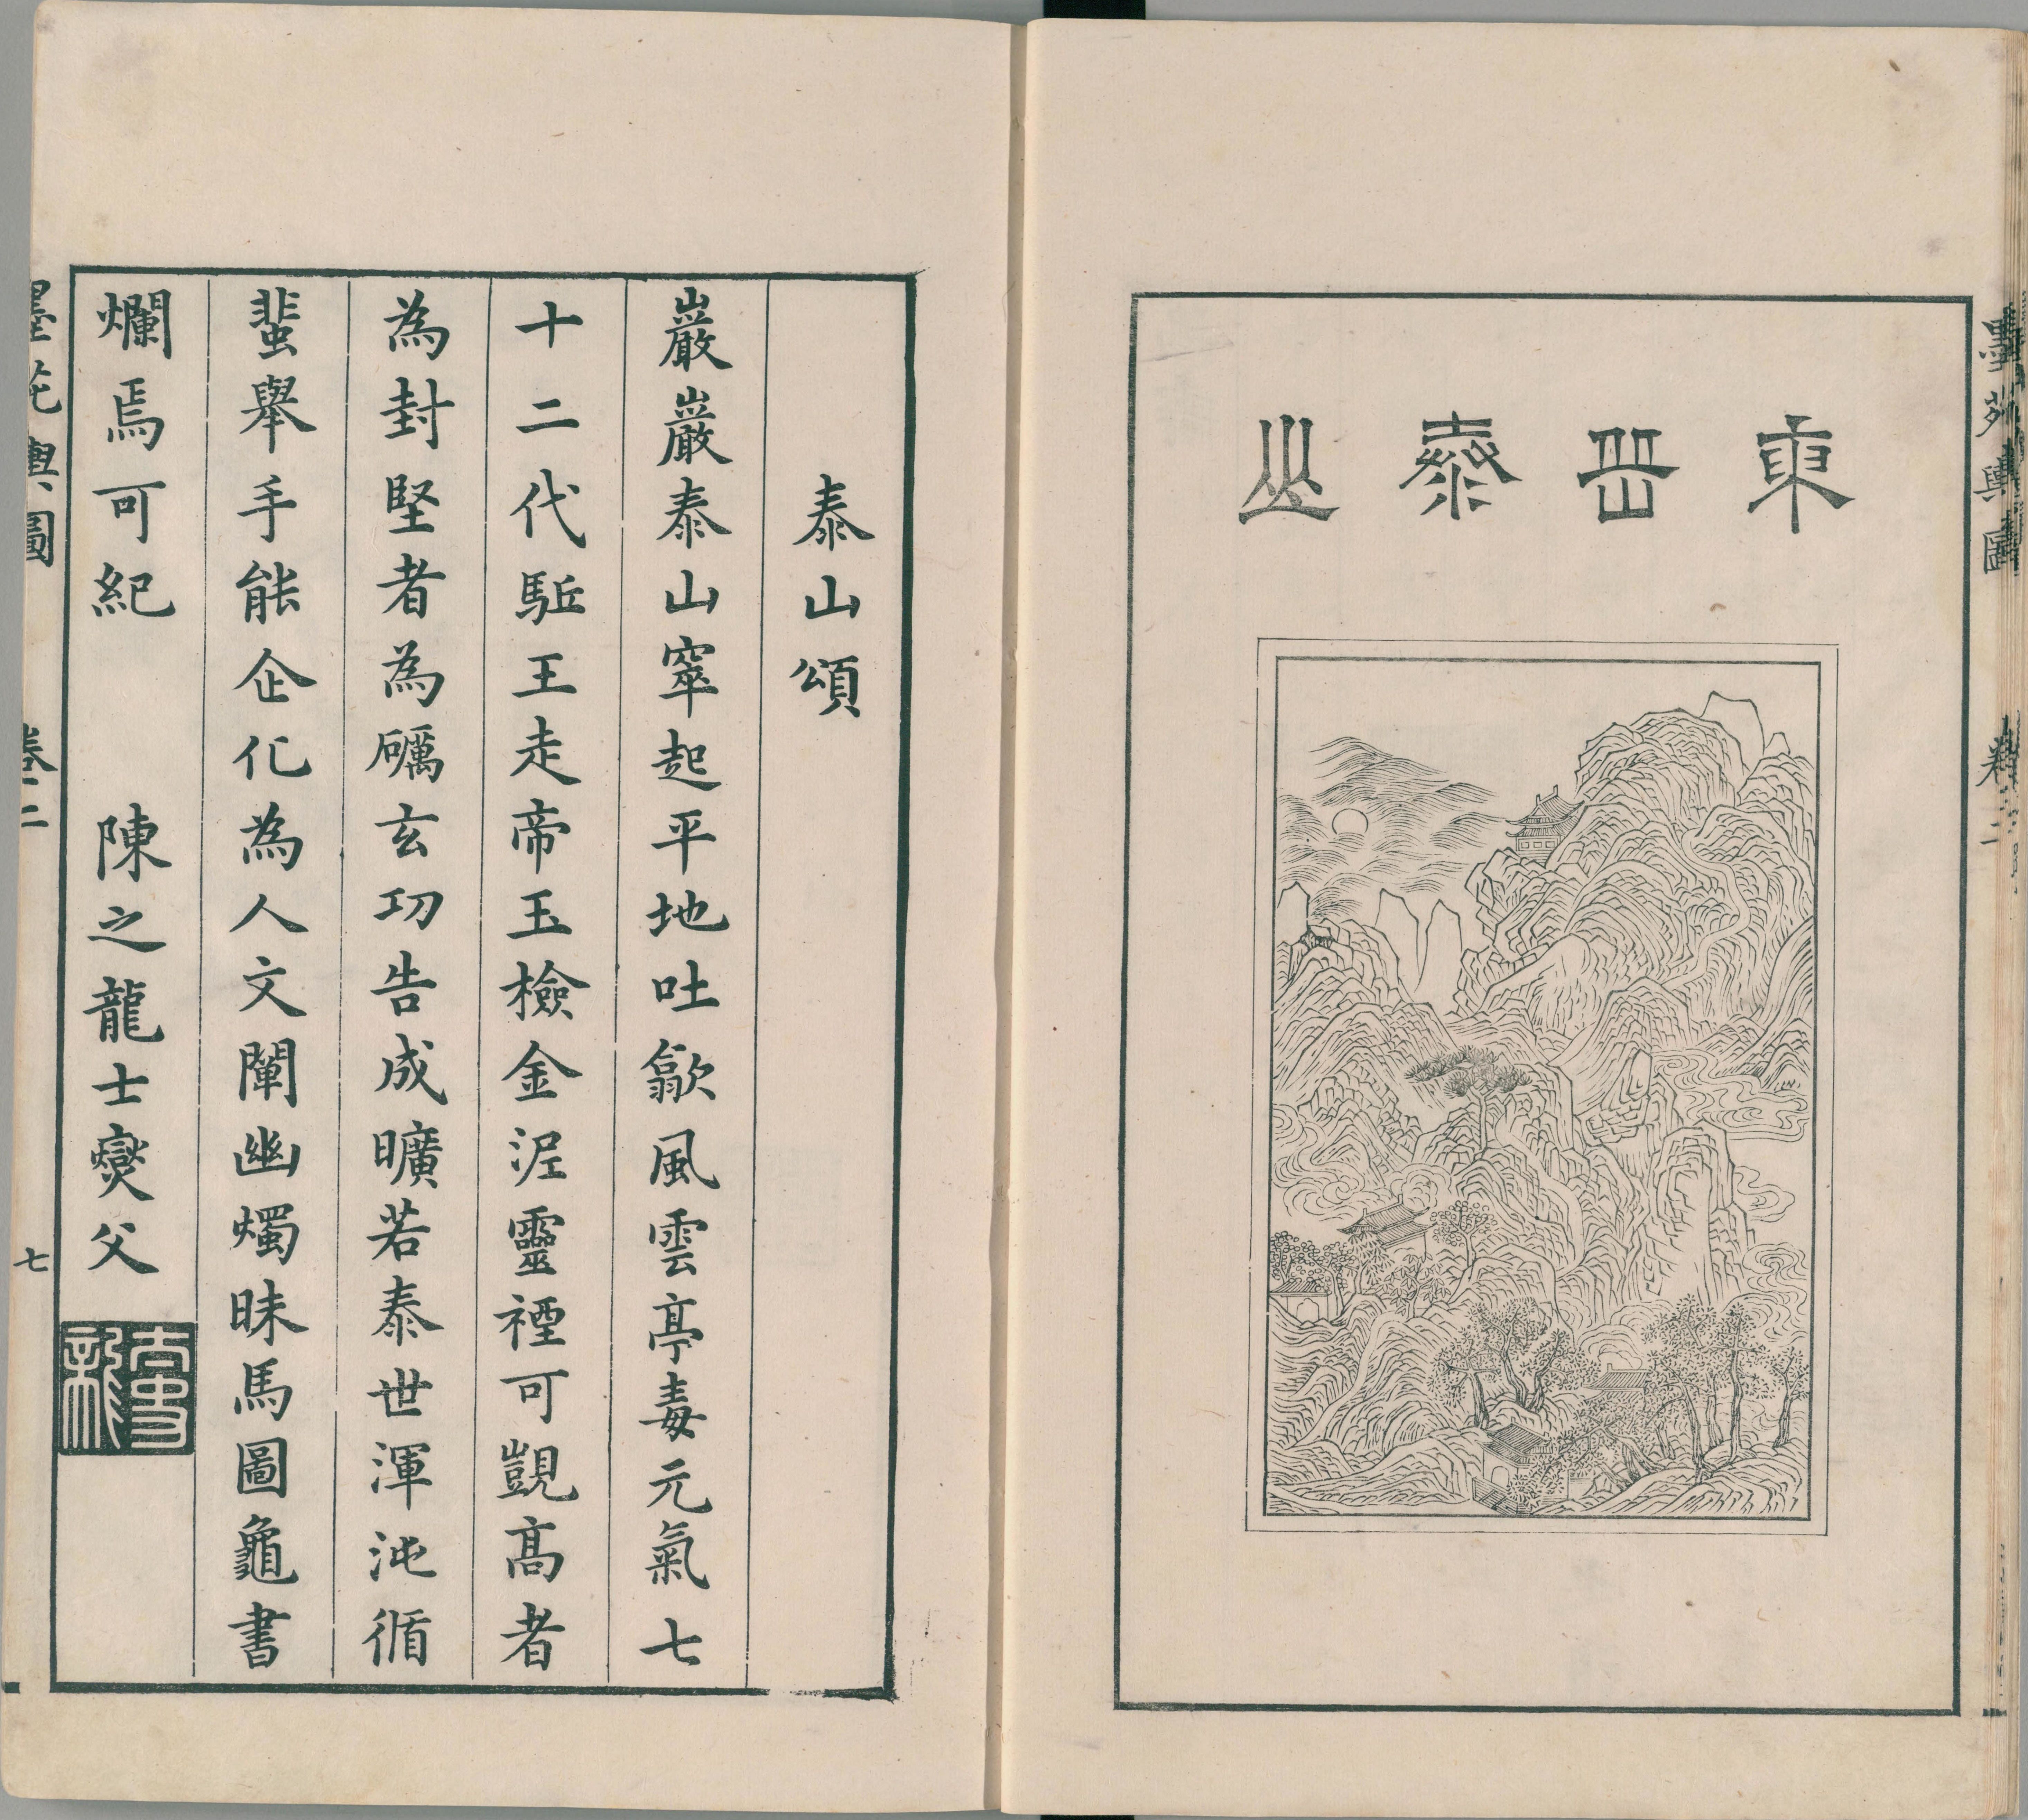 墨苑輿圖 卷二
東岳泰山
泰山頌
巖巖泰山窣起平地吐歙風雲亭毒元氣七
十二代駈王走帝玉檢金泥靈禋可覬高者
為封堅者為礪玄功告成曠若泰世渾沌循
蜚舉手能企化為人文闡幽燭昧馬圖龜書
爛焉可紀 陳之龍士燮父
墨苑輿圖 卷二 七